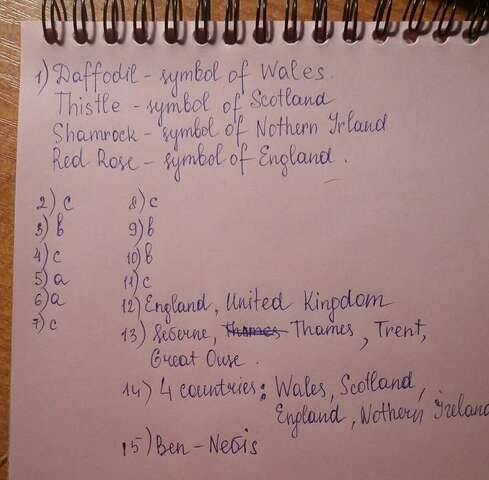 1) Daffodil - symbol of Wales.
Thistle - symbol of Scotland
Shamrock - symbol of Nothern Irland
Red Rose - symbol of England.
2) c
3) b
4) c
5) a
6) a
7) c
8) c
9) b
10) b
11) c
12) England, United Kingdom
13) Seberne, Thames Thames, Trent,
Great Ouse.
14) 4 countries: Wales, Scotland,
England, Nothern Ireland
15) Ben - Nebis